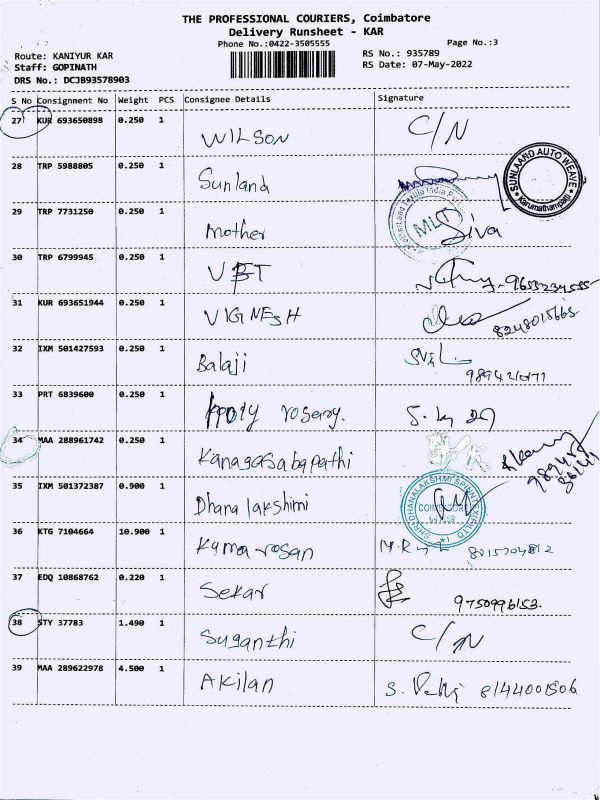 THE PROFESSIONAL COURIERS, Coimbatore
Delivery Runsheet - KAR
Phone No.:0422-3505555
Page No.:3
Route: KANIYUR KAR
RS No.: 935789
Staff: GOPINATH
RS Date: 07-May-2022
DRS No.: DCJB93578903
S No Consignment No Weight PCS Consignee Details Signature
27 KUR 693650898 0.250 1 WILSON C/N
28 TRP 5988805 0.250 1 Sunland
SUNLAARD AUTO WEAVE
Karumathampatti
29 TRP 7731250 0.250 1 Mother Siva
MLT
30 TRP 6799945 0.250 1
31 KUR 693651944 0.250 1 VIGNESH 8248015665
32 IXM 501427593 0.250 1 Balaji
33 PRT 6839600 0.250 1 rosary.
34 MAA 288961742 0.250 1 Kanagasabapathi
35 IXM 501372387 0.900 1 Dhanalakshimi
36 KTG 7104664 10.900 1 Kumarosan
37 EDQ 10868762 0.220 1 Sekar 9750996153.
38 STY 37783 1.490 1 Suganthi C/N
39 MAA 289622978 4.500 1 Akilan 8144001506